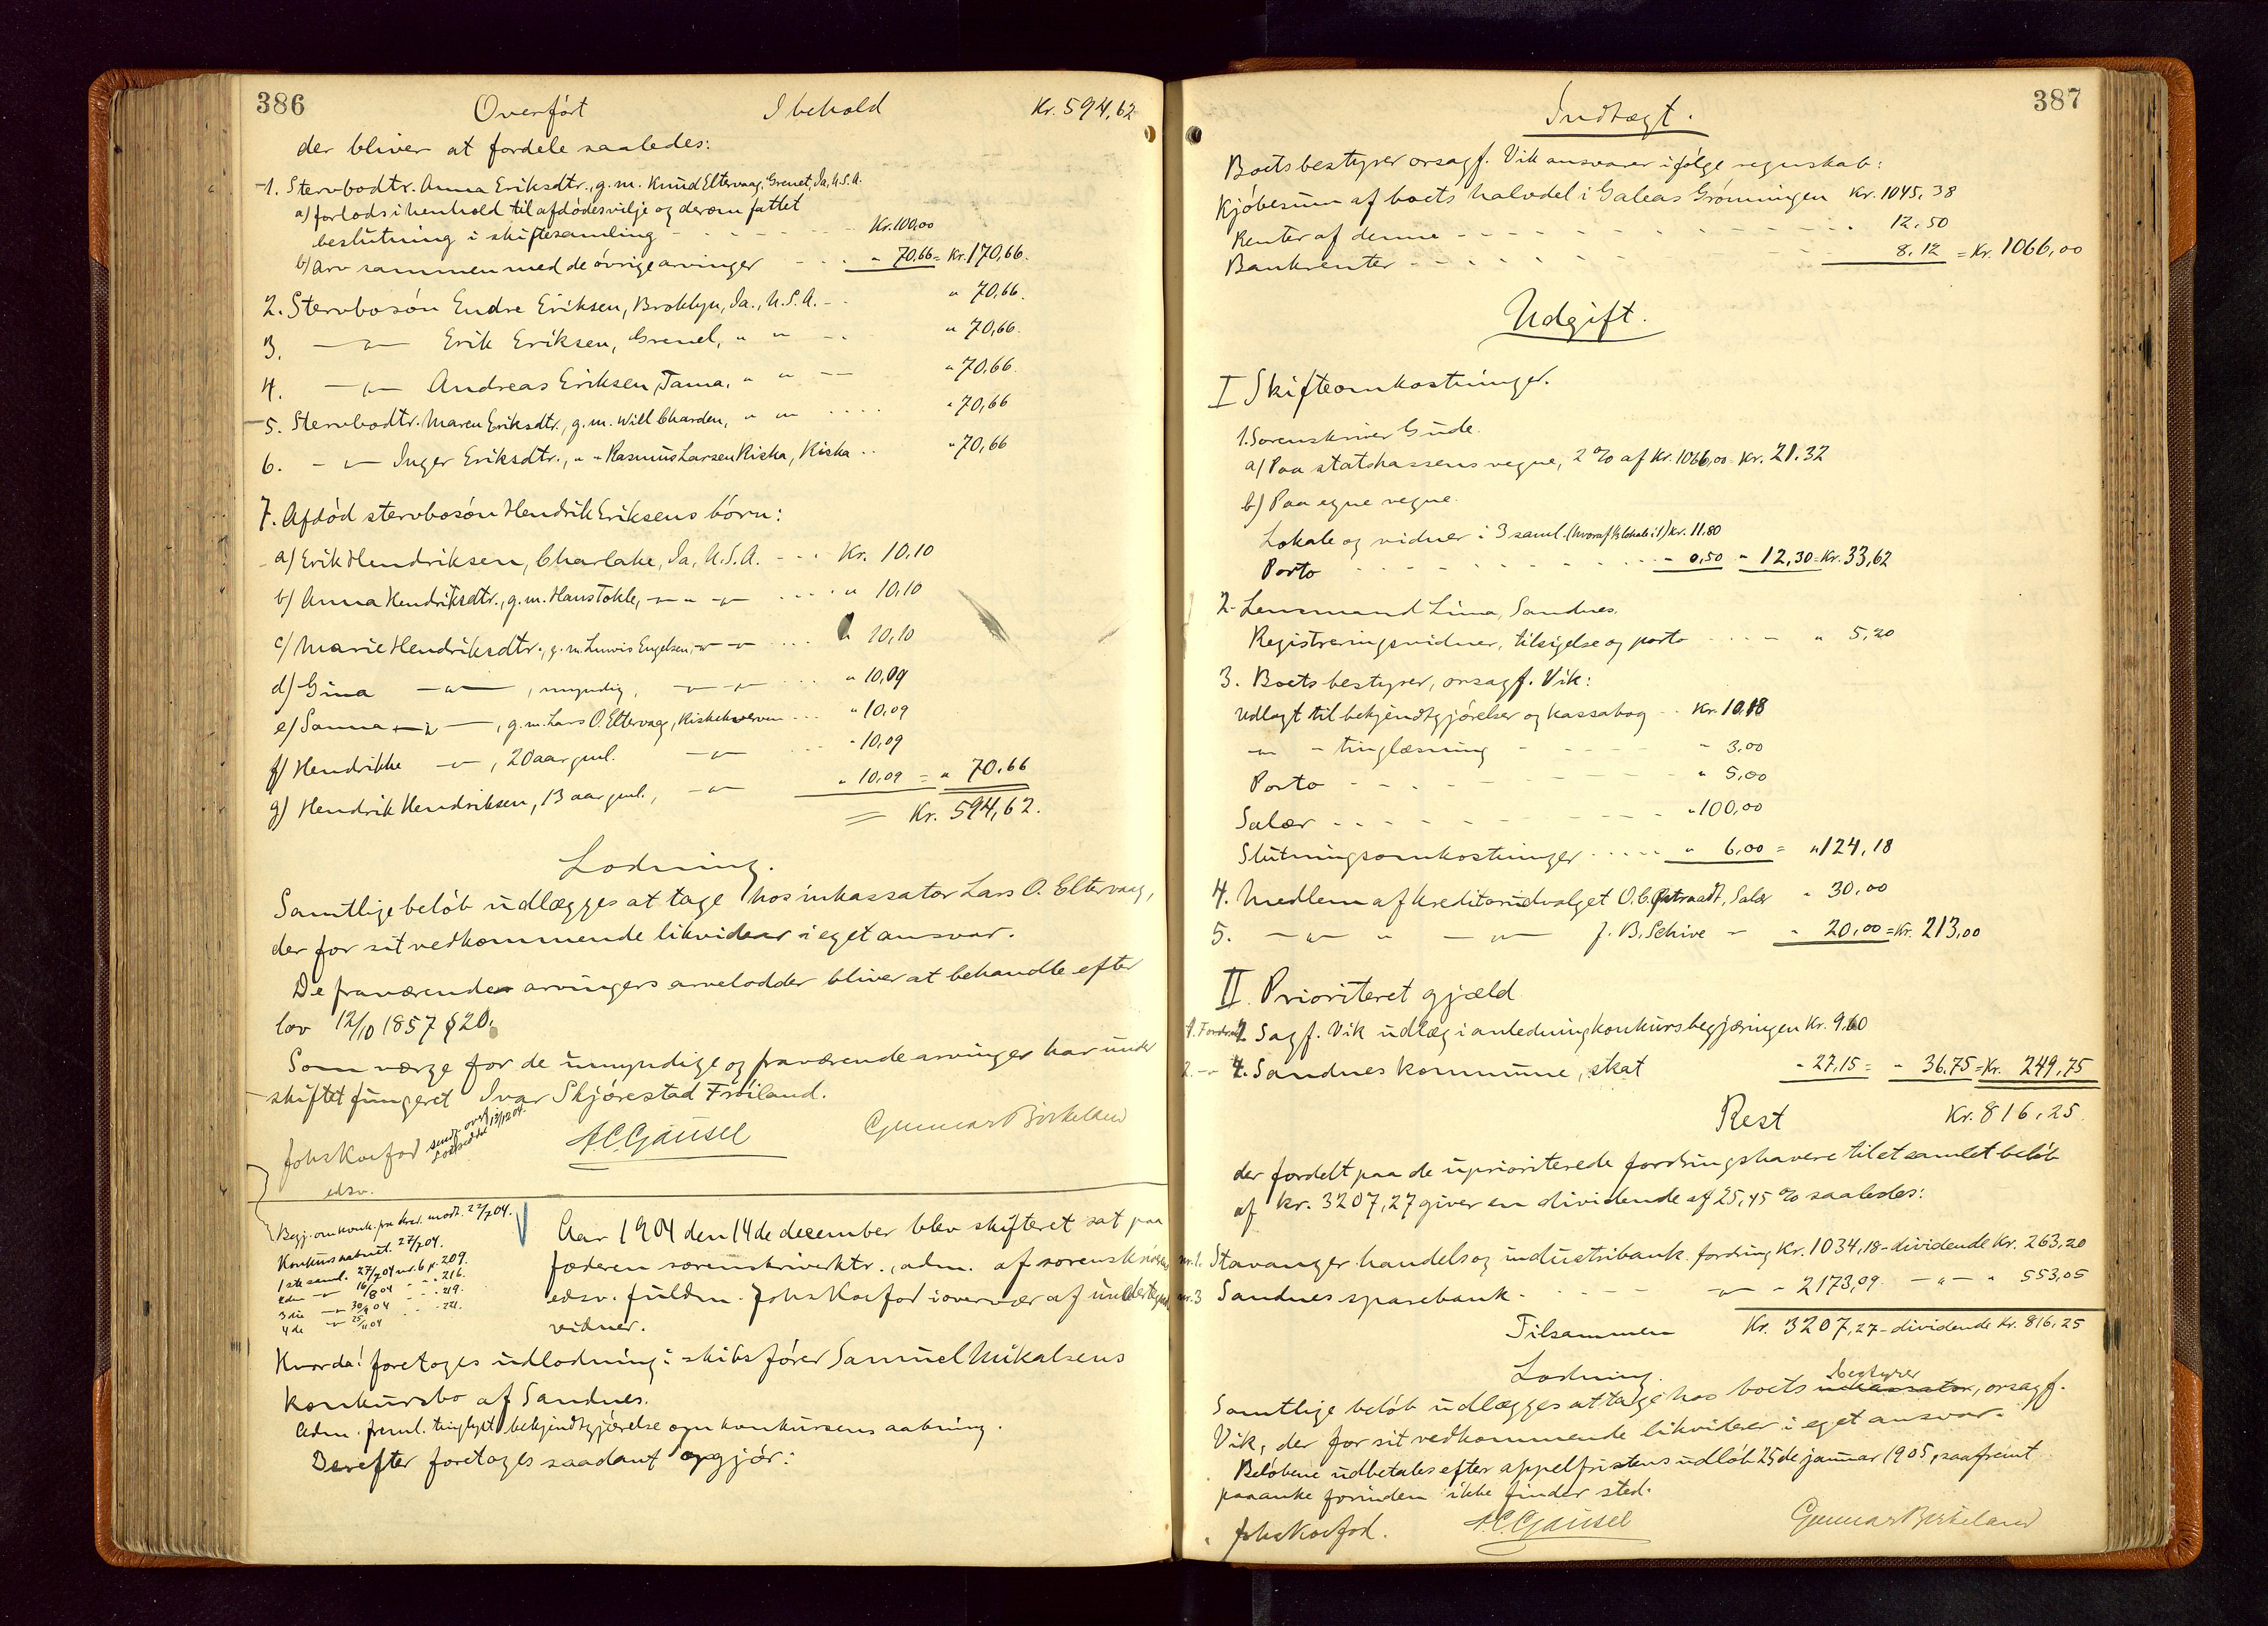 386
Overført I behold Kr. 594,62
der bliver at fordele saaledes:
1. Stervbodtr. Anna Eriksdtr., g.m. Knud Eltervaag, Grenet, Ia, U.S.A.
a) forlods i henhold til afdødes vilje og derom fattet
beslutning i skiftesamling - - - - - Kr. 100,00
b) Arv sammen med de øvrige arvinger - - - " 70,66 = Kr. 170,66.
2. Stervbosøn Endre Eriksen, Broklyn, Ia., U.S.A. - - " 70,66.
3. —"— Erik Eriksen, Grenel, " " - - " 70,66.
4. —"— Andreas Eriksen, Tama, " " — " 70,66.
5. Stervbodtr. Maren Eriksdtr., g.m. Will Charden, " " .... " 70,66
6. - "— Inger Eriksdtr., " " Rasmus Larsen Riska, Riska .. " 70,66
7. Afdød stervbosøn Hendrik Eriksens børn:
a) Erik Hendriksen, Charlake, Ia, U.S.A. - - - Kr. 10,10
b) Anna Hendriksdtr., g.m. Hans Tokle, —"— " —"— .... " 10,10
c) Marie Hendriksdtr., g.m. Luwis Engelsen, —"— —"— .... " 10,10
d) Gina —"—, myndig, —"— —"— ... " 10,09
e) Sanna —"—, g.m. Lars O. Eltervag, Riskekverven ... " 10,09
f) Hendrikke —"—, 20 aar gml. —"— ... " 10,09
g) Hendrik Hendriksen, 13 aar gml., —"— " 10,09 = " 70,66
= Kr. 594,62.
Lodning.
Samtlige beløb udlægges at tage hos inkassator Lars O. Eltervaag,
der for sit vedkommende likviderer i eget ansvar.
De fraværende arvingers arvelodder bliver at behandle efter
lov 12/10 1857 § 20.
Som værge for de umyndige og fraværende arvinger har under
skiftet fungeret Ivar Skjørestad Frøiland.
Johs Koefod
edsv.
A.C. Gausel
Gunnar Birkeland
Begj. om konk. fra kred. modt. 22/7 04.
Konkurs aabnet 27/7 04.
1ste saml. 27/7 04 nr. 6 p. 209.
2den —"— 16/8 04 - - - 216.
3die —"— 30/9 04 - - - 219.
4de —"— 25/11 04 - - - 221.
Aar 1904 den 14de december blev skifteret sat paa
Jæderen sorenskriverktr., adm. af sorenskriverens
edsv. fuldm. Johs Koefod i overvær af undertegnede
vidner.
Hvorda! foretoges udlodning i skibsfører Samuel Mikalsens
konkursbo af Sandnes.
Adm. freml. tinglyst bekjendtgjørelse om konkursens aabning.
Derefter foretoges saadant opgjør:
387
Indtægt.
Boets bestyrer orsagf. Vik ansvarer ifølge regnskab:
Kjøbesum af boets halvdel i Galeas Grønningen Kr. 1045,38
Renter af denne - - - - - - " 12,50
Bankrenter - - - - - - 8,12 = Kr. 1066,00
Udgift.
I Skifteomkostninger.
1. Sorenskriver Gude.
a) Paa statskassens vegne, 2 % af Kr. 1066,00 Kr. 21.32
b) Paa egne vegne.
Lokale og vidner i 3 saml. (hvoraf ½ lokale i 1) kr. 11.80
Porto - - - - - - " 0,50 " 12,30 = Kr. 33,62
2. Lensmand Lima, Sandnes.
Registreringsvidner, tilsigelse og porto - - - - " 5,20
3. Boets bestyrer, orsagf. Vik:
Udlagt til bekjendtgjørelser og kassabog - - Kr. 10,18
—"— - tinglæsning - - - - " 3,00
Porto - - - - - - " 5,00
Salær - - - - - - " 100,00
Slutningsomkostninger ..... " 6,00 = " 124,18
4. Medlem af kreditorudvalget O.C. Østraadt, Salær " 30,00
5. —"— " —"— J.B. Schive - " 20,00 = Kr. 213,00
II. Prioriteret gjæld
1. Sagf. Vik udlæg i anledning konkursbegjæringen Kr. 9,60
2. —"— Sandnes kommune, skat " 27,15 = " 36,75 = Kr. 249,75
Rest Kr. 816,25.
der fordelt paa de uprioriterede fordringshavere til et samlet beløb
af kr. 3207,27 giver en dividende af 25,45 % saaledes:
nr. 1. Stavanger handels og industribank fordring Kr. 1034,18 - dividende Kr. 263,20
nr. 3 Sandnes sparebank - - - - —"— " 2173,09 —"— " 553,05
Tilsammen Kr. 3207,27 - dividende Kr. 816,25
Lodning.
Samtlige beløb udlægges at tage hos boets inkassator bestyrer, orsagf.
Vik, der for sit vedkommende likviderer i eget ansvar.
Beløbene udbetales efter appelfristens udløb 25de januar 1905, saafremt
paaanke forinden ikke finder sted.
Johs Koefod.
A.C. Gausel
Gunnar Birkeland